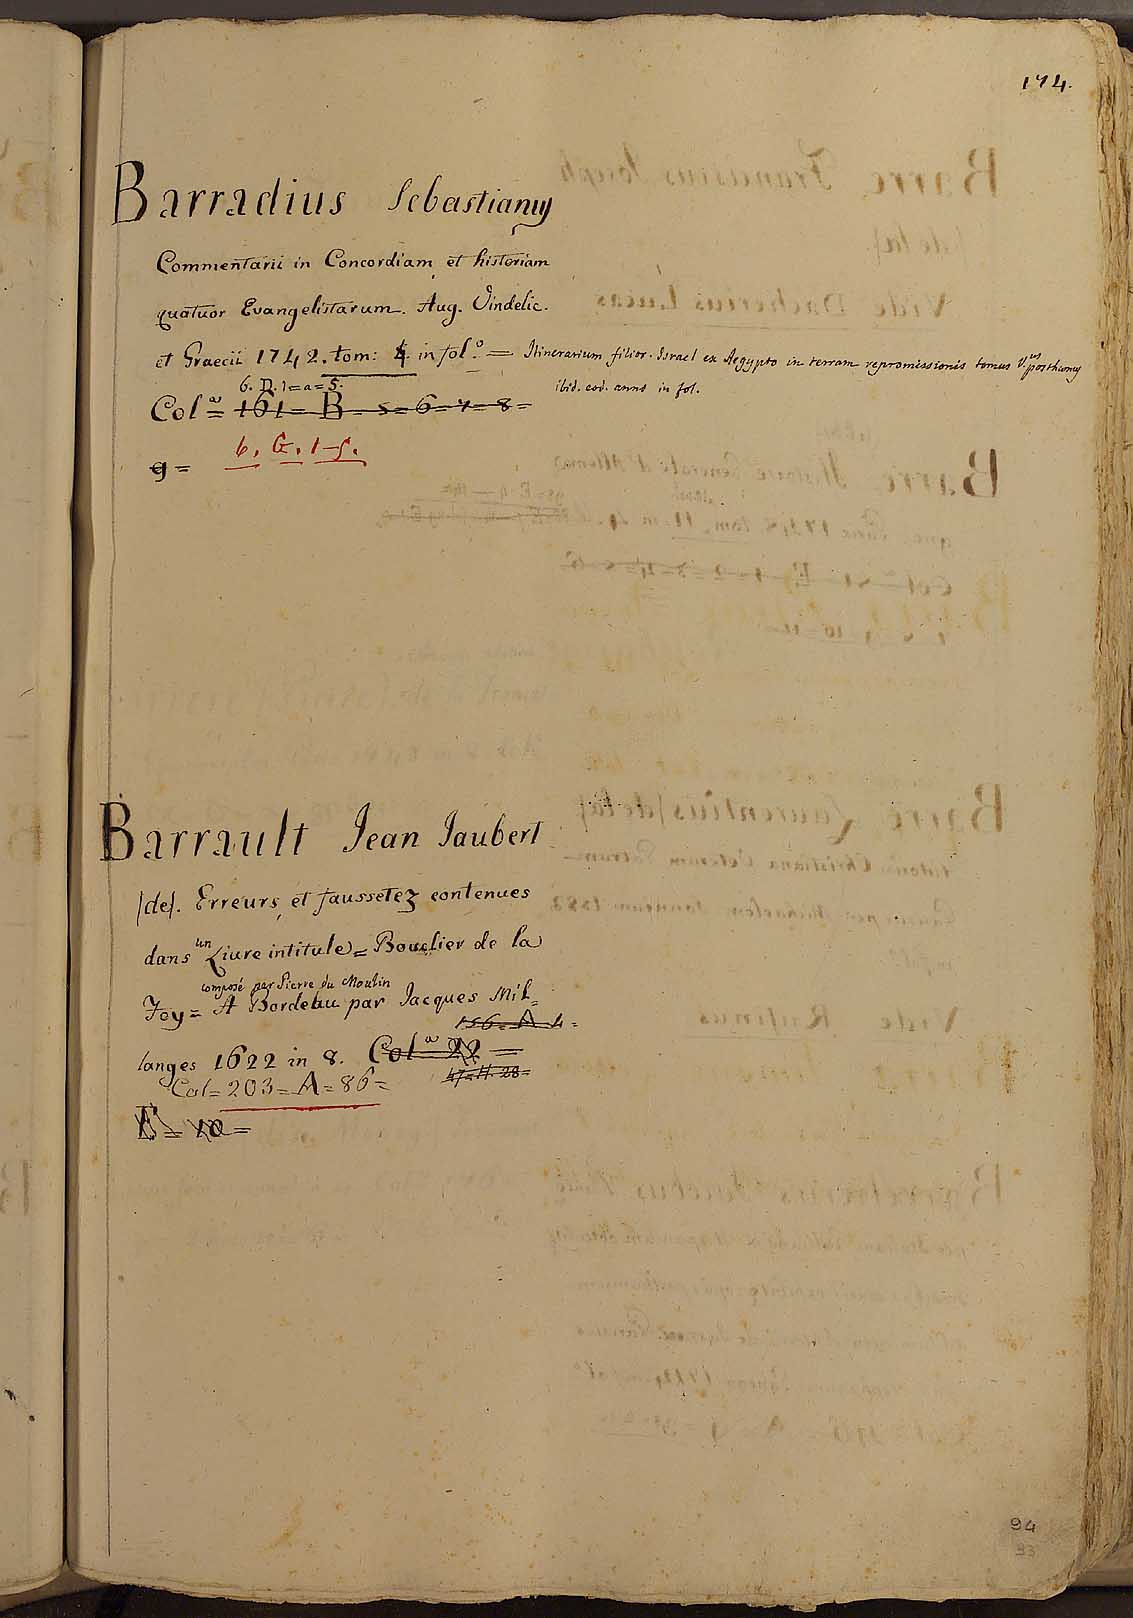 174.
Barradius Sebastianus
Commentarii in Concordiam et historiam
quatuor Evangelistarum. Aug. Vindelic.
et Graecii 1742. tom: 4. in fol.º = Itinerarium filior. Israel ex Aegypto in terram repromissionis tomus V.us posthumus
ibid. eod. anno in fol.
6. D. 1=a=5.
Colª = 161 = B = 5=6=7=8=
9=
6. G. 1-5.
Barrault Jean Jaubert
/de/. Erreurs et faussetez contenues
dans un Liure intitule = Bouclier de la
composé par Pierre du Moulin
Foy = A Bordeau par Jacques Mil=
156=A 4=
langes 1622 in 8. Colª 22 =
47=H. 28=
Col= 203= A= 86=
E= 10=
94
93